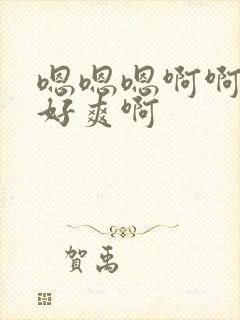 嗯嗯嗯啊啊
好爽啊
賀禹